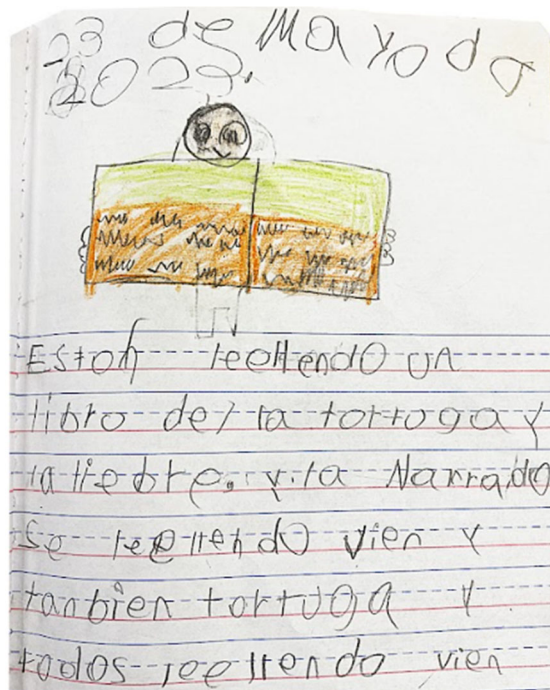 23 de Mayo do
2023.
Estoy leellendo un
libro de la tortoga y
la liebre. y la Narrado
se leellendo vien y
tanbien tortuga y
todos leellendo vien